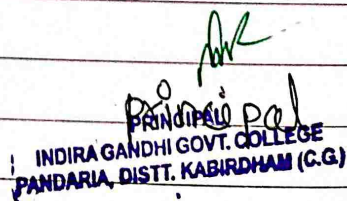 principal
PRINCIPAL
INDIRA GANDHI GOVT. COLLEGE
PANDARIA, DISTT. KABIRDHAM (C.G.)